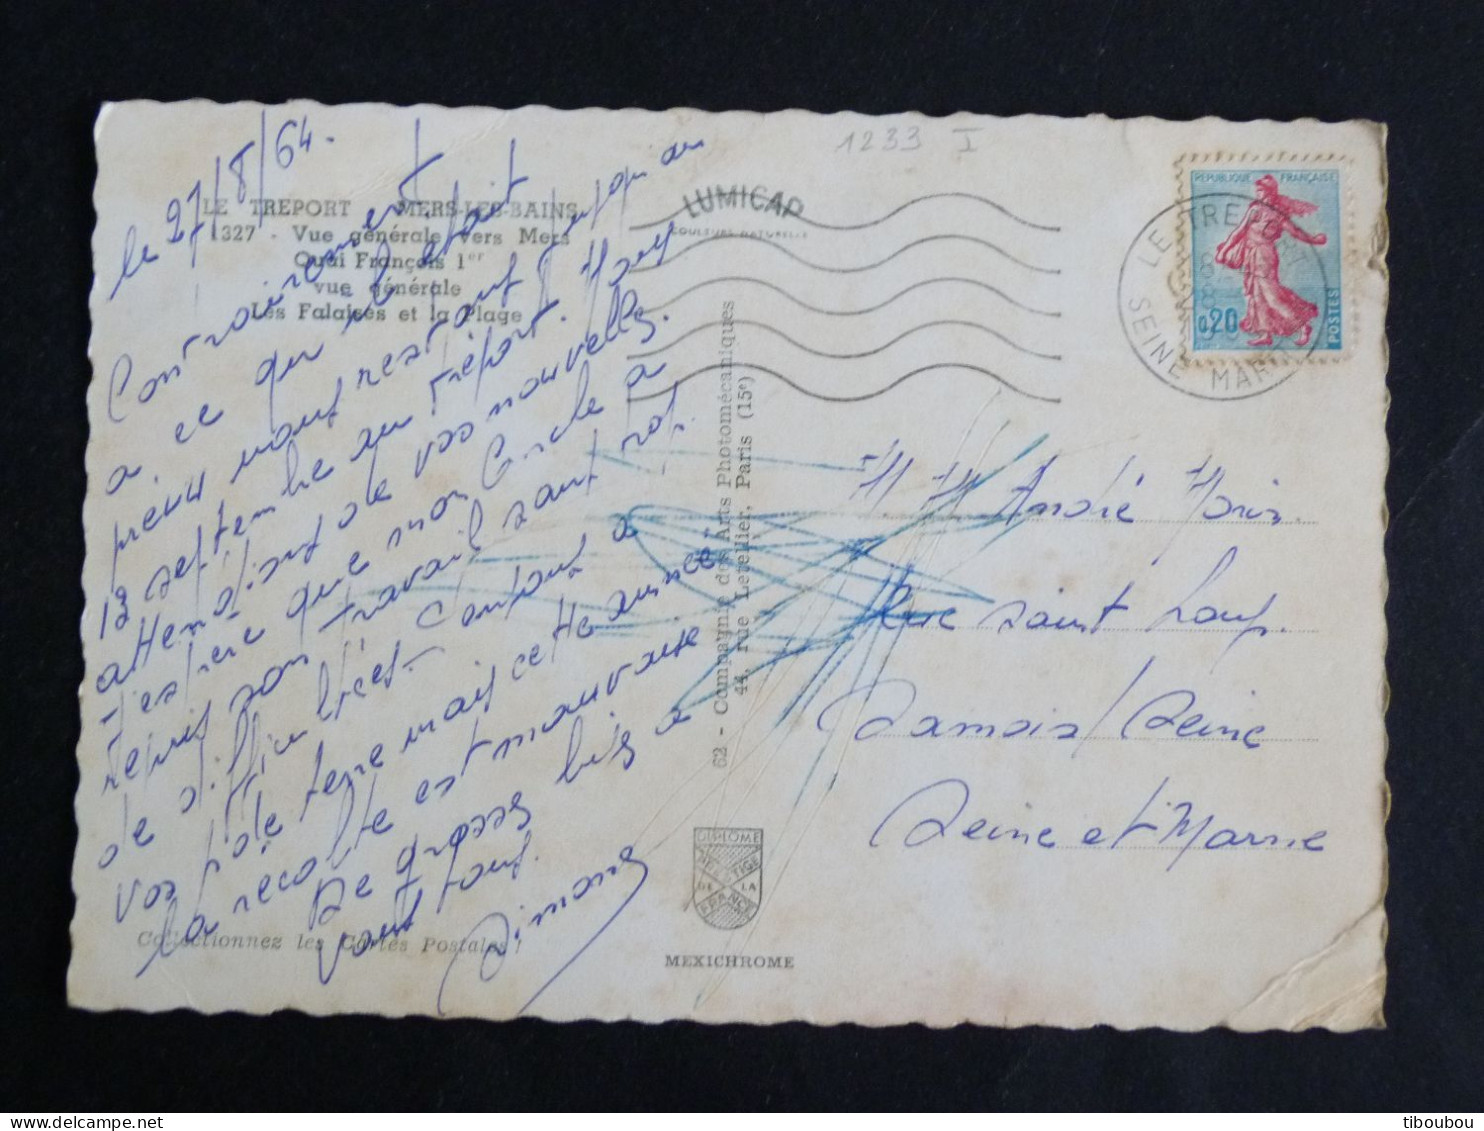 1233 I
le 27/8/64.
LE TREPORT - MERS-LES-BAINS
1327 - Vue générale vers Mers
Quai François 1er
vue générale
Les Falaises et la Plage
Contrairement
a ce qui etait
prévu nous restont jusqu'au
13 septembre au tréport.
attendiont de vos nouvelles.
J'espère que mon Oncle a
repris son travail sant trop
de difficultées.
vos p de terre mais cette année
la récolte est mauvaise
De grosses bis a
vous tous.
Simone
Collectionnez les Cartes Postales !
LUMICAP
COULEURS NATURELLES
62 - Compagnie des Arts Photomécaniques
44, rue Letellier, Paris (15e)
DIPLOME
PRESTIGE
DE LA
FRANCE
MEXICHROME
REPUBLIQUE FRANÇAISE
0,20
POSTES
LE TREPORT
SEINE MARITIME
M M André
Rue saint Loup.
Samois/Seine
Seine et Marne
tiboubou